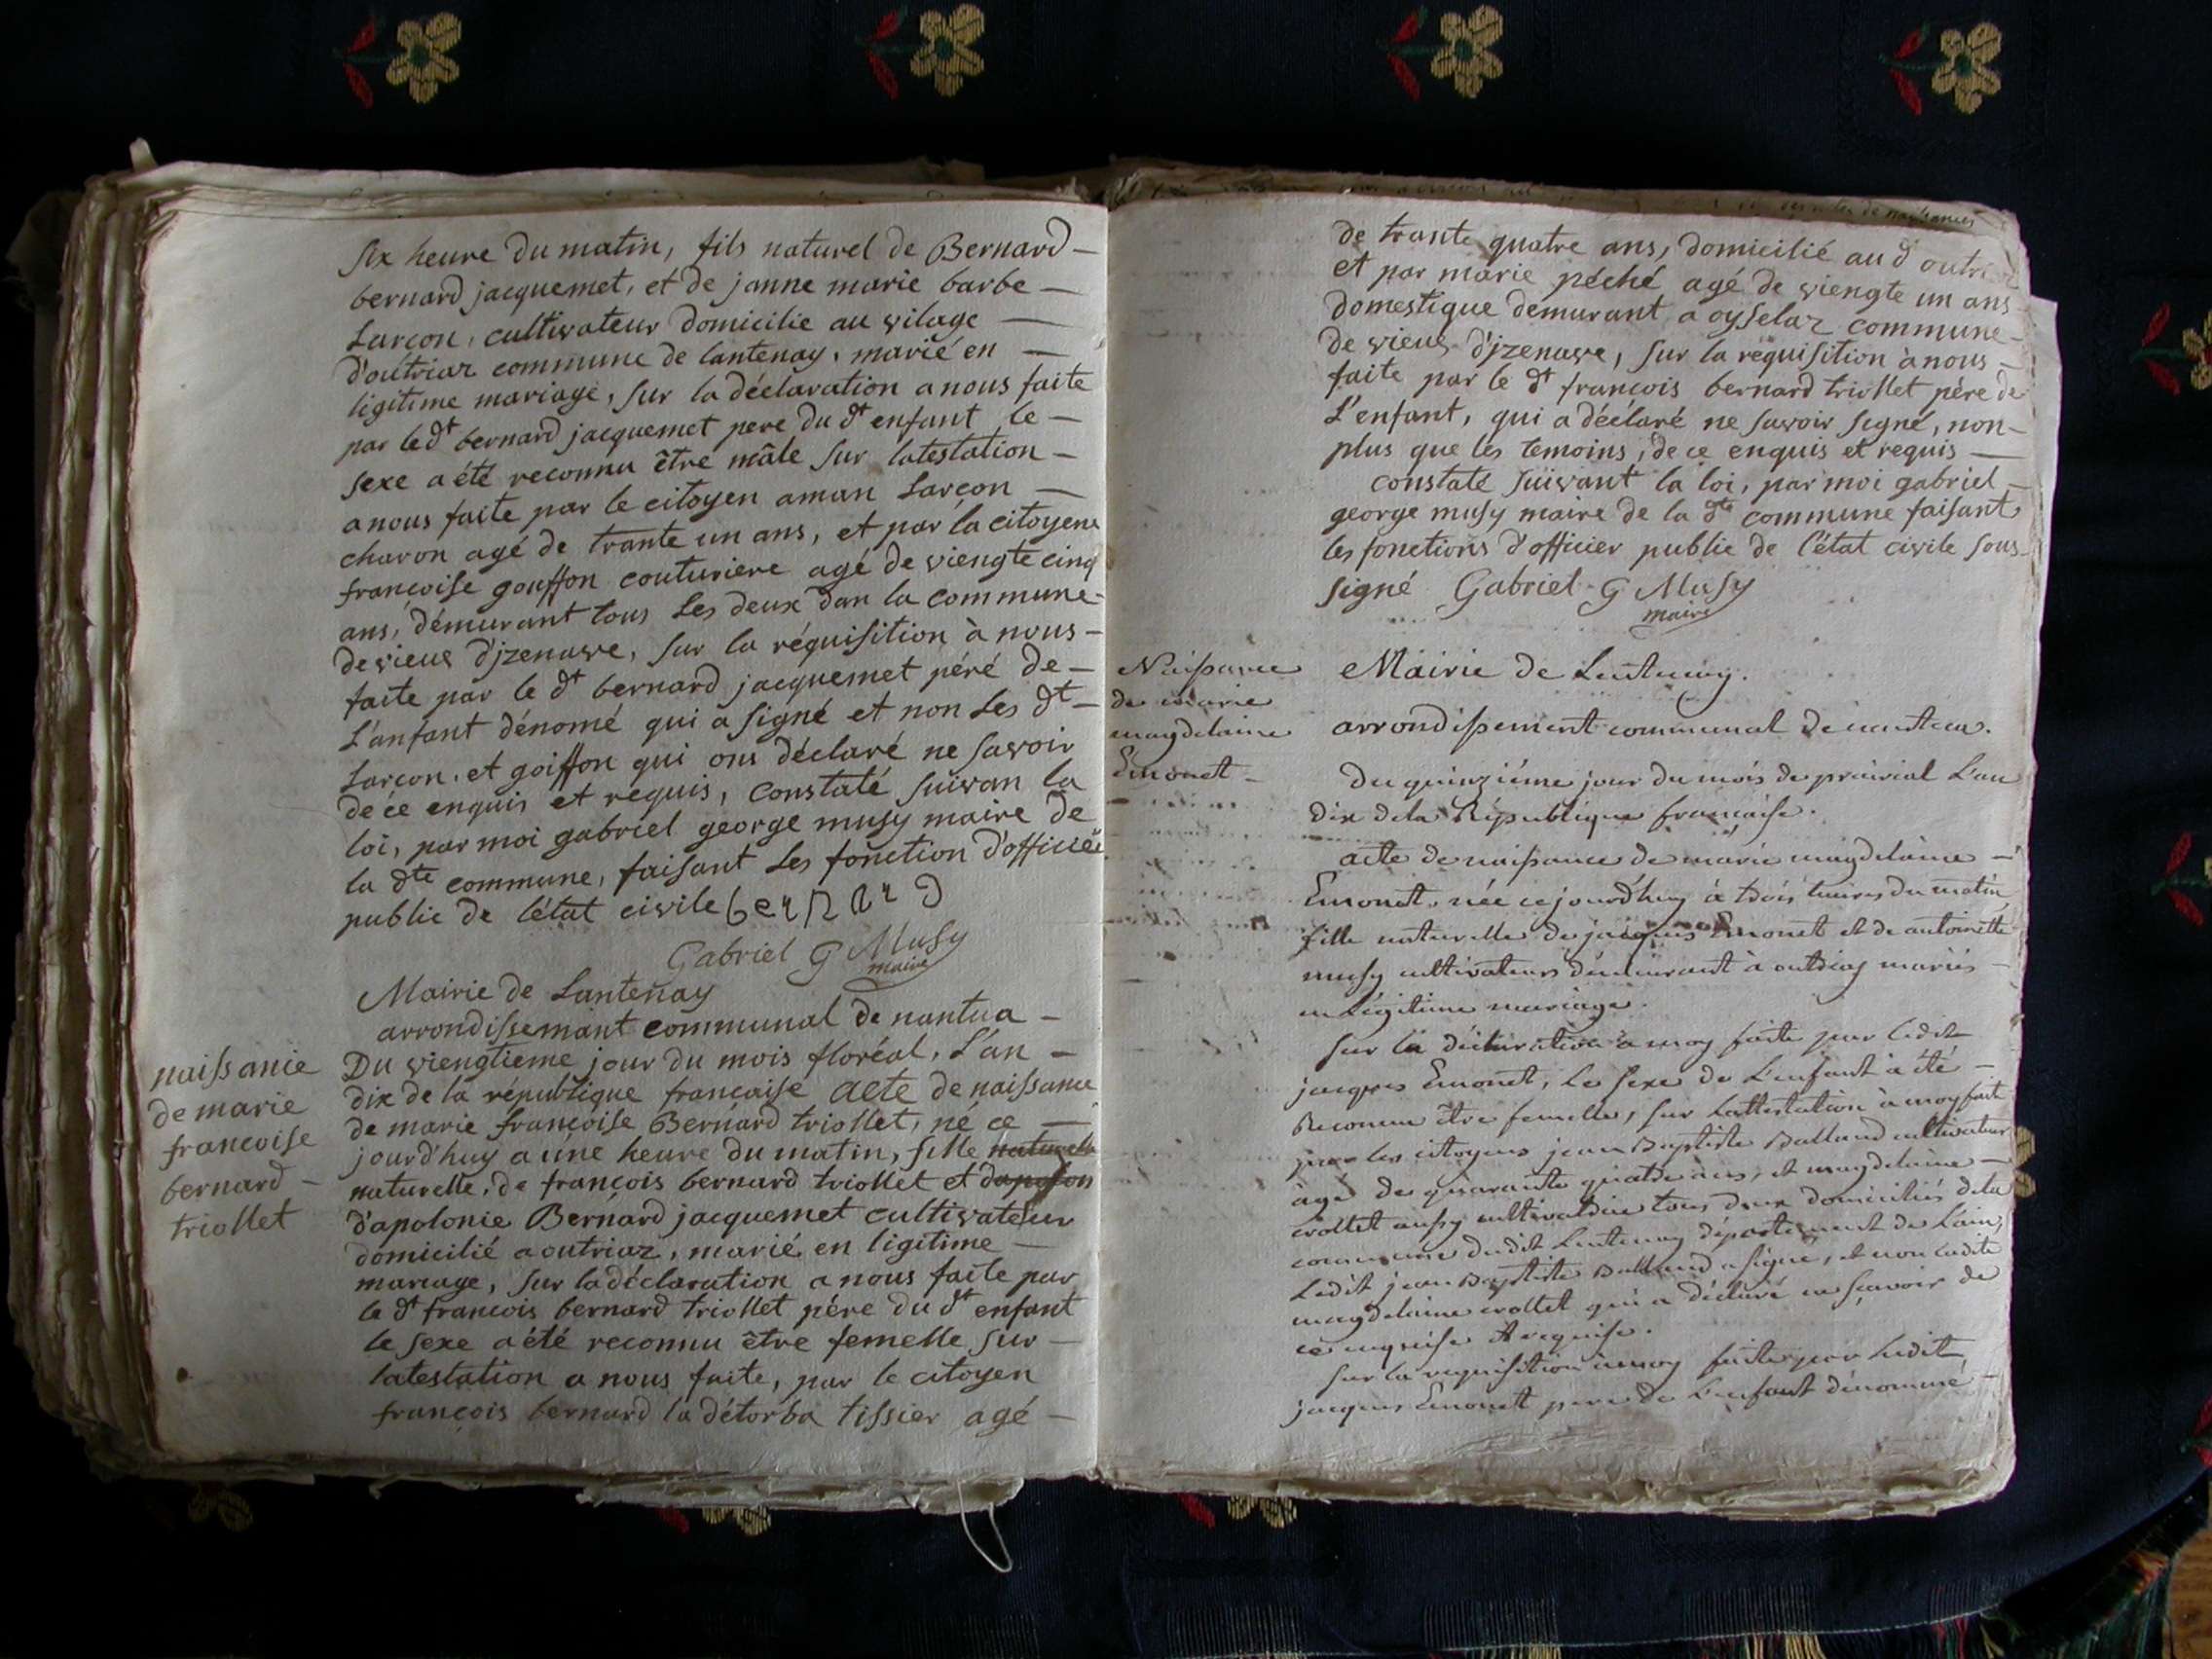 six heure du matin, fils naturel de Bernard —
bernard jacquemet, et de janne marie barbe —
Larcon, cultivateur domicilie au vilage —
d'outriaz commune de lantenay, marié en —
ligitime mariage, sur la déclaration a nous faite
par le dt bernard jacquemet pere du dt enfant le —
sexe a été reconnu être mâle sur latestation —
a nous faite par le citoyen aman Larcon —
charon agé de trante un ans, et par la citoyene
francoise gouffon couturiere agé de viengte cinq
ans, démurant tous les deux dan la commune —
de vieux d'jzenave, sur la réquisition à nous —
faite par le dt bernard jacquemet péré de —
L'anfant dénomé qui a signé et non les dt —
Larcon, et goiffon qui ons déclaré ne savoir
de ce enquis et requis, constaté suivan la
loi, par moi gabriel george musy maire de
la dte commune, faisant les fonction d'officier
public de l'état civile bernard
Gabriel G Musy
maire
Mairie de Lantenay
arrondissemant communal de nantua —
naissance
de marie
francoise
bernard —
triollet
Du viengtieme jour du mois floréal, L'an —
dix de la république francaise acte de naissance
de marie francoise Bernard triollet, né ce —
jourd'huy a une heure du matin, fille naturelle
naturelle, de francois bernard triollet et
d'apolonie Bernard jacquemet cultivateur
domicilié a outriaz, marié en ligitime —
mariage, sur la déclaration a nous faite par
le dt francois bernard triollet père du dt enfant
le sexe a été reconnu être femelle sur —
latestation a nous faite, par le citoyen
françois bernard la détorba tissier agé —
de trante quatre ans, domicilié au d outriaz
et par marie péché agé de viengte un ans
domestique demurant a oysselaz commune —
de vieux d'jzenave, sur la réquisition à nous —
faite par le dt francois bernard triollet père de
L'enfant, qui a déclaré ne savoir signé, non —
plus que les temoins, de ce enquis et requis —
constaté suivant la loi, par moi gabriel —
george musy maire de la dte commune faisant
les fonctions d'officier public de l'état civile sous
signé Gabriel G Musy
maire
Naissance
de marie
magdelaine
Emonet —
Mairie de Lentenay.
arrondissement communal de nantua.
Du quinziéme jour du mois de prairial L'an
dix dela République française.
acte de naissance de marie magdelaine —
Emonet, née cejourd'huy à trois heures du matin
fille naturelle de jacques Emonet et de antoinette
musy cultivateurs demeurant à outriaz mariés —
en Légitime mariage.
Sur la déclaration à moy faite par ledit
jacques Emonet, le sexe de L'enfant à été —
Reconnu être femelle, sur lattestation à moy faite
par les citoyens jean Baptiste Balland cultivateur
àgé de quarante quatre ans, et magdelaine —
aussy cultivatrice tous deux domiciliés dela
commune dudit Lentenay département de L'ain,
Ledit jean Baptiste Balland a signé, et non ladite
magdelaine qui a déclaré ne sçavoir de
ce enquise et requise.
Sur la requisition à moy faite par ledit
jacques Emonet pere de L'enfant dénommé —